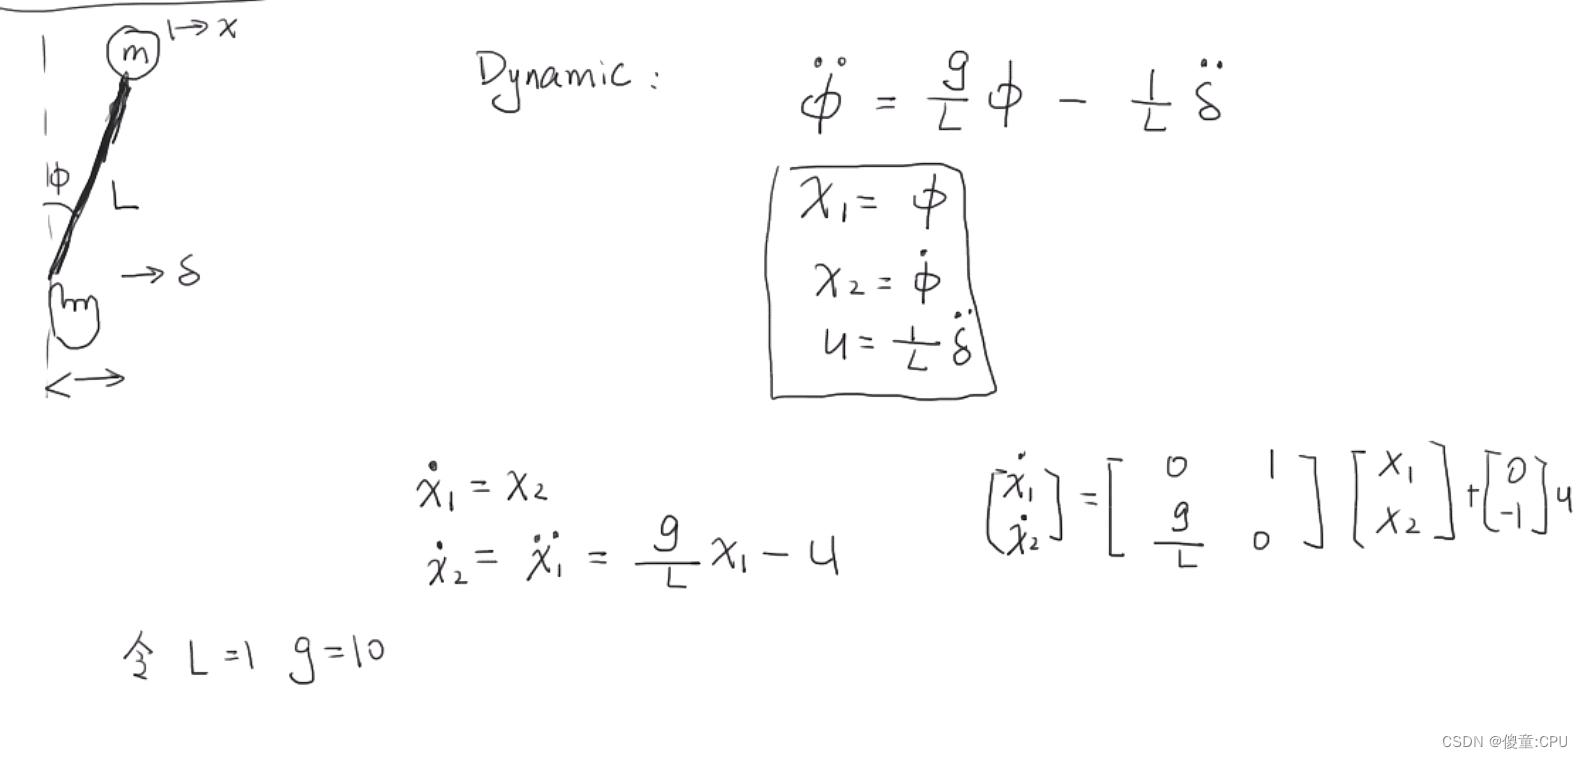 m ↦ x
Dynamic : ϕ̈ = g/L ϕ - 1/L δ̈
ϕ
L
→ δ
x₁ = ϕ
x₂ = ϕ̇
u = 1/L δ̈
ẋ₁ = x₂
ẋ₂ = ẍ₁ = g/L x₁ - u
[ẋ₁ ẋ₂] = [0 1 g/L 0] [x₁ x₂] + [0 -1] u
令 L=1 g=10
CSDN @傻童:CPU